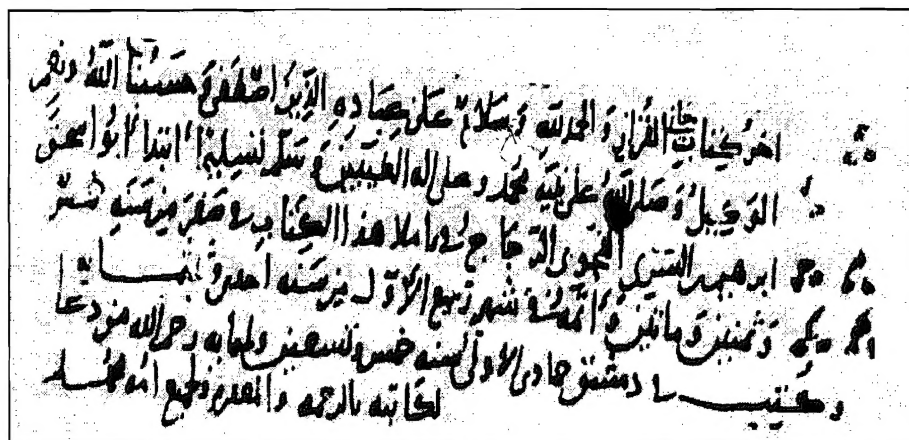 اخر كتاب معاني القران والحمد لله وسلام على عباده الذين اصطفى وحسبنا الله ونعم
الوكيل وصلى الله على نبيه محمد وعلى اله الطيبين وسلم تسليما ابتدا ابو اسحق
ابرهيم السري النحوي الزجاج في املا هذا الكتاب في صفر من سنه خمس
وثمنين ومائتين واتمه في شهر ربيع الاول من سنه احدى وثلثمائه
وكتب بدمشق جمادى الاولى لسنه خمس وتسعين وثلثمايه رحم الله من دعا
لكاتبه بالرحمه والمغفره ولجميع امه